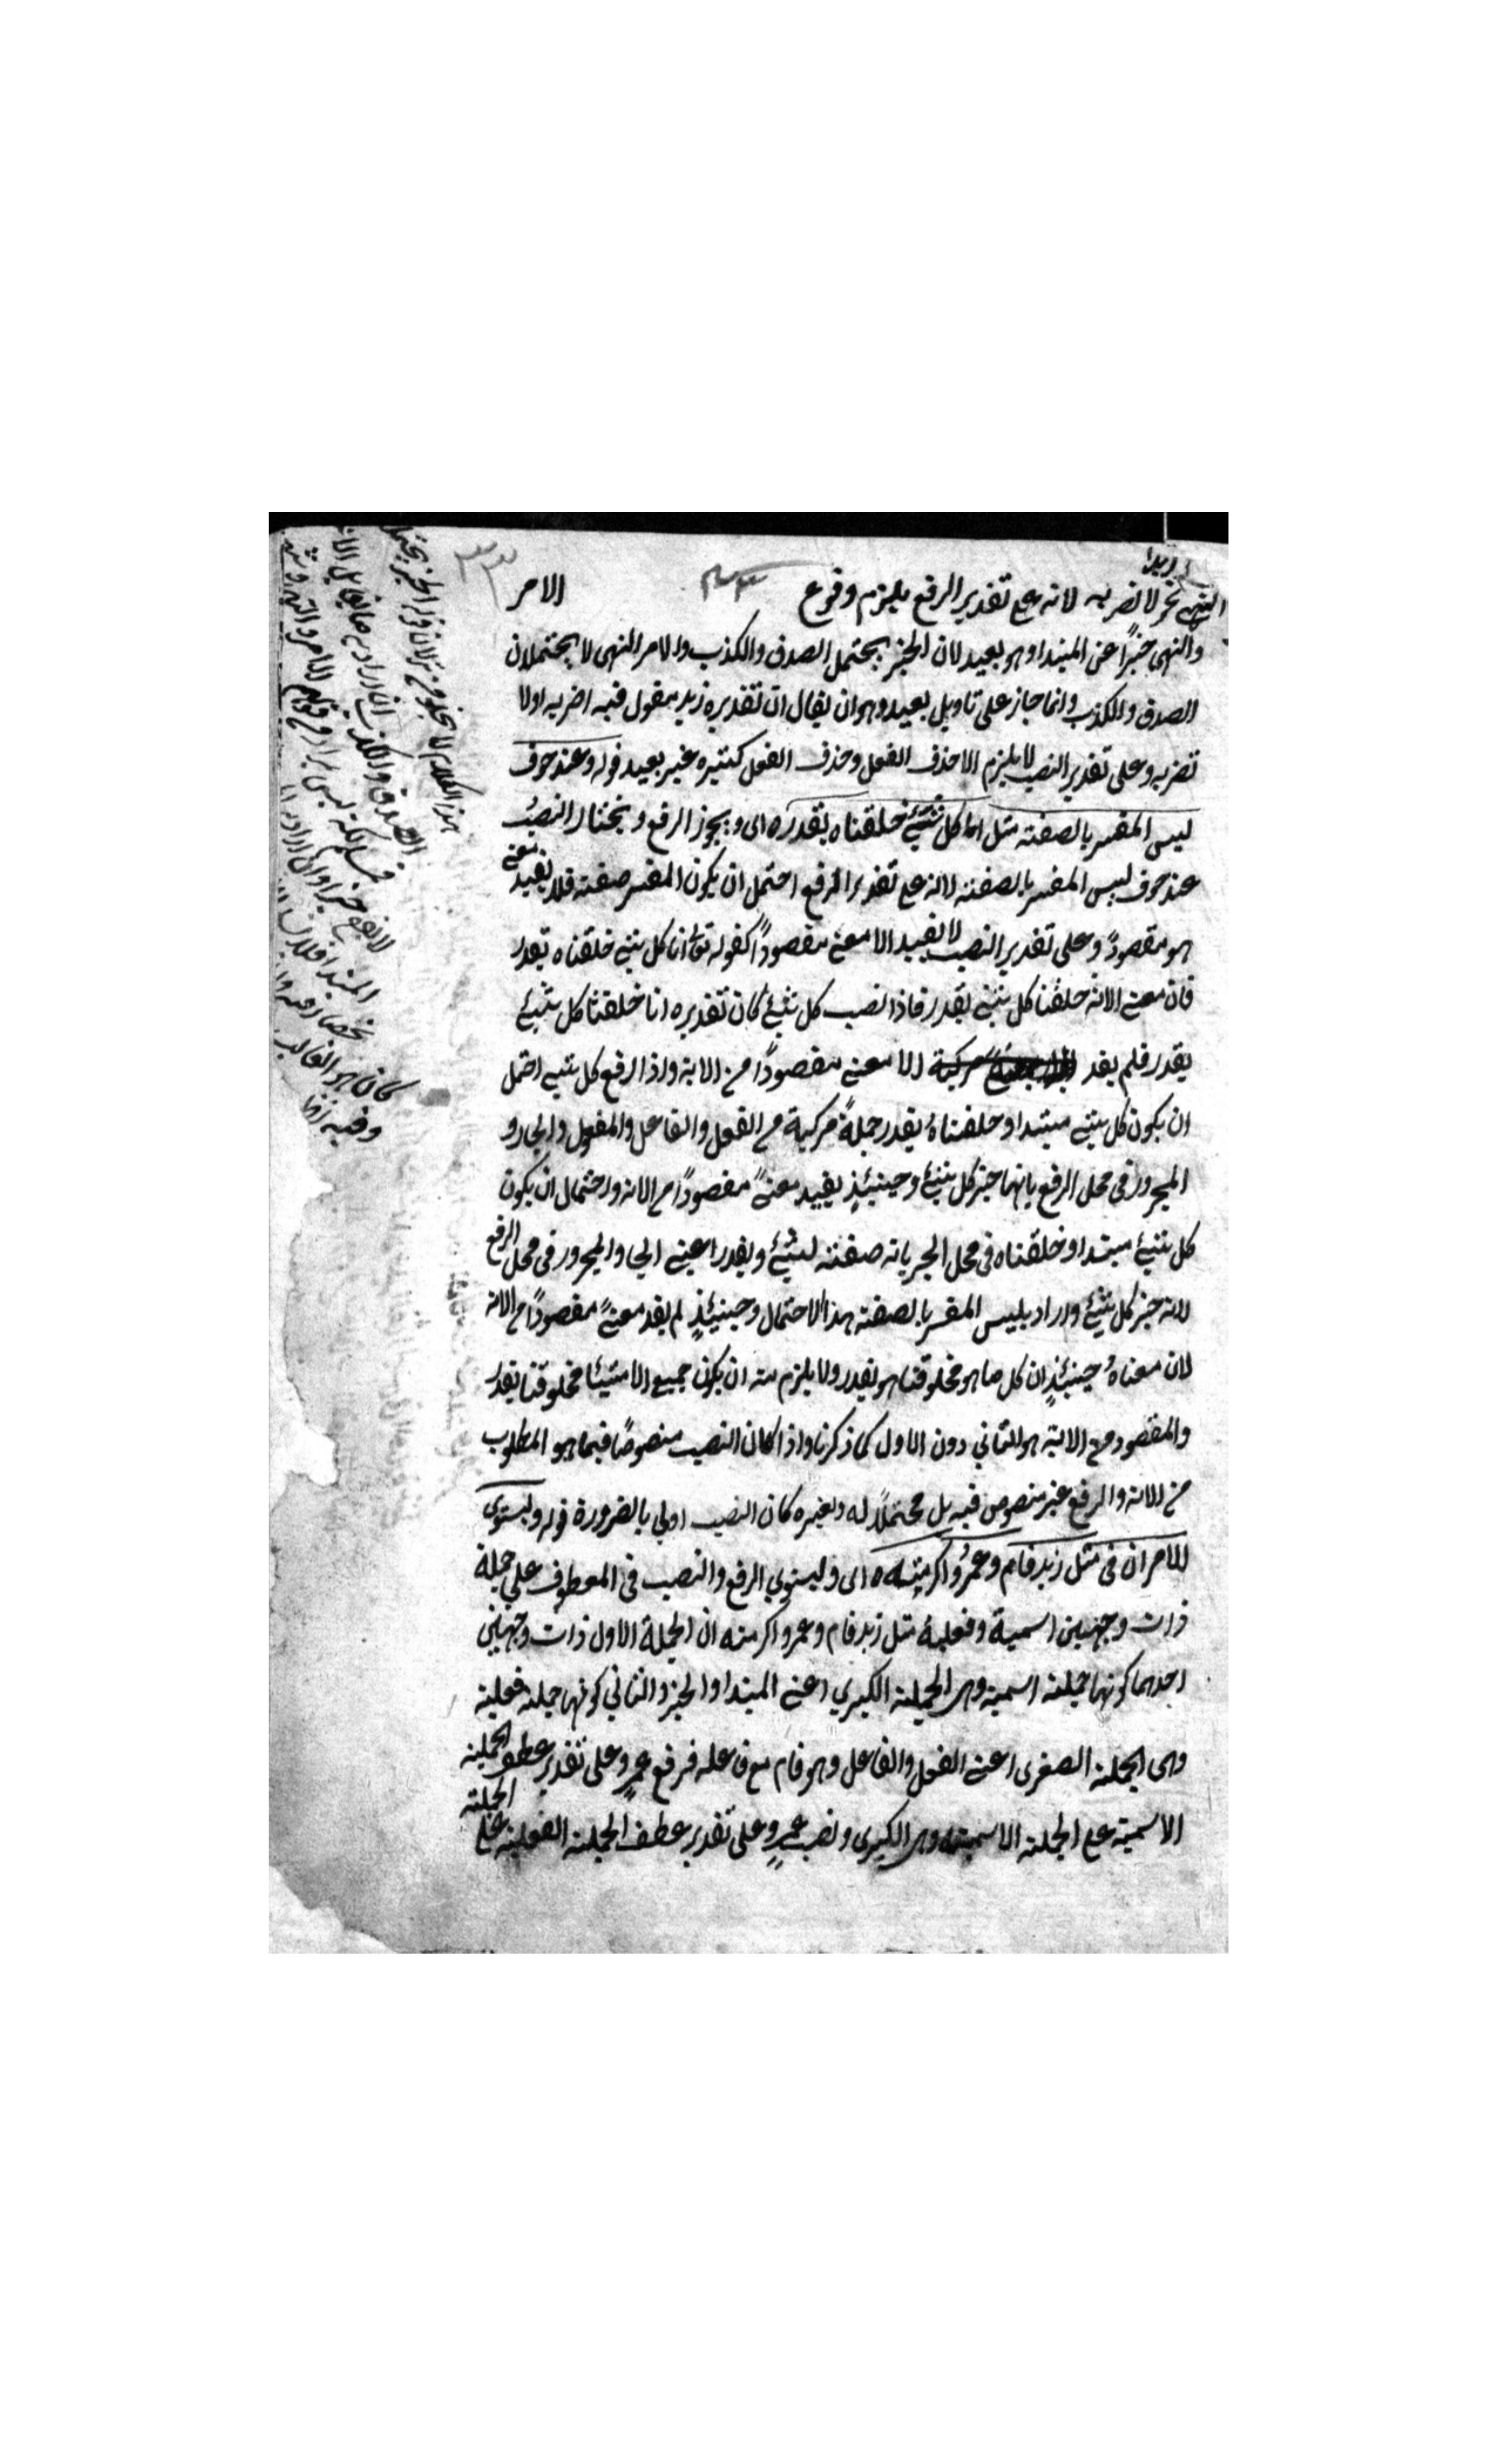 زيدا
النهى نحو لا تضربه لانه على تقدير الرفع يلزم وقوع الامر
٣٣
والنهى خبرًا عن المبتدا وهو بعيد لان الخبر يحتمل الصدق والكذب والامر النهى لا يحتملان
الصدق والكذب وانما جاز على تاويل بعيد وهو ان يقال ان تقديره زيد مقول فيه اضربه اولا
تضربه وعلى تقدير النصب لا يلزم الا حذف الفعل وحذف الفعل كثيره غير بعيد قوله وعند خوف
ليس المفسر بالصفة مثل انا كل شئ خلقناه بقدره اى ويجوز الرفع ويختار النصب
عند خوف ليس المفسر بالصفة لانه على تقدير الرفع احتمل ان يكون المفسر صفة فلا يفيد معنى
هو مقصودً وعلى تقدير النصب لا يفيد الا معنى مقصودًا كقوله تع انا كل شئ خلقناه بقدر
فان معنى الاية خلقنا كل شئ بقدر فاذا نصب كل شئ كان تقديره انا خلقنا كل شئ
بقدر فلم يفد الا معنى مقصودًا من الاية واذا رفع كل شئ احتمل
ان يكون كل شئ مبتدا وخلقناه بقدر جملةً مركبة من الفعل والفاعل والمفعول والجار و
المجرور فى محل الرفع بانها خبر كل شئ وحينئذٍ يفيد معنىً مقصودًا من الاية واحتمال ان يكون
كل شئ مبتدا وخلقناه فى محل الجر بانه صفة لشئ وبقدر اعنى الجار والمجرور فى محل الرفع
لانه خبر كل شئ واراد بلبس المفسر بالصفة هذا الاحتمال وحينئذٍ لم يفد معنىً مقصودًا من الاية
لان معناهُ حينئذٍ ان كل ما هو مخلوقنا هو بقدر ولا يلزم منه ان يكون جميع الاشيئا مخلوقنا بقدر
والمقصود من الاية هو الثانى دون الاول كما ذكرنا واذا كان النصب منصوصًا فيما هو المطلوب
من الاية والرفع غير منصوص فيه بل محتملًا له ولغيره كان النصب اولى بالضرورة قوله ويستوى
الامران فى مثل زيد قام وعمرٌو اكرمته ه اى ويستوى الرفع والنصب فى المعطوف على جملة
ذات وجهين اسمية وفعلية مثل زيد قام وعمرو اكرمته ان الجملة الاول ذات وجهين
احدهما كونها جملة اسمية وهى الجملة الكبرى اعنى المبتدا والخبر والثانى كونها جملة فعلية
وهى الجملة الصغرى اعنى الفعل والفاعل وهو قام مع فاعله فرفع عمرٍو على تقدير عطف الجملة
الاسمية على الجملة الاسمية وهى الكبرى ونصب عمرٍو على تقدير عطف الجملة الفعلية على الجملة
هذا الكلام لا يخلو عن
الصدق والكذب